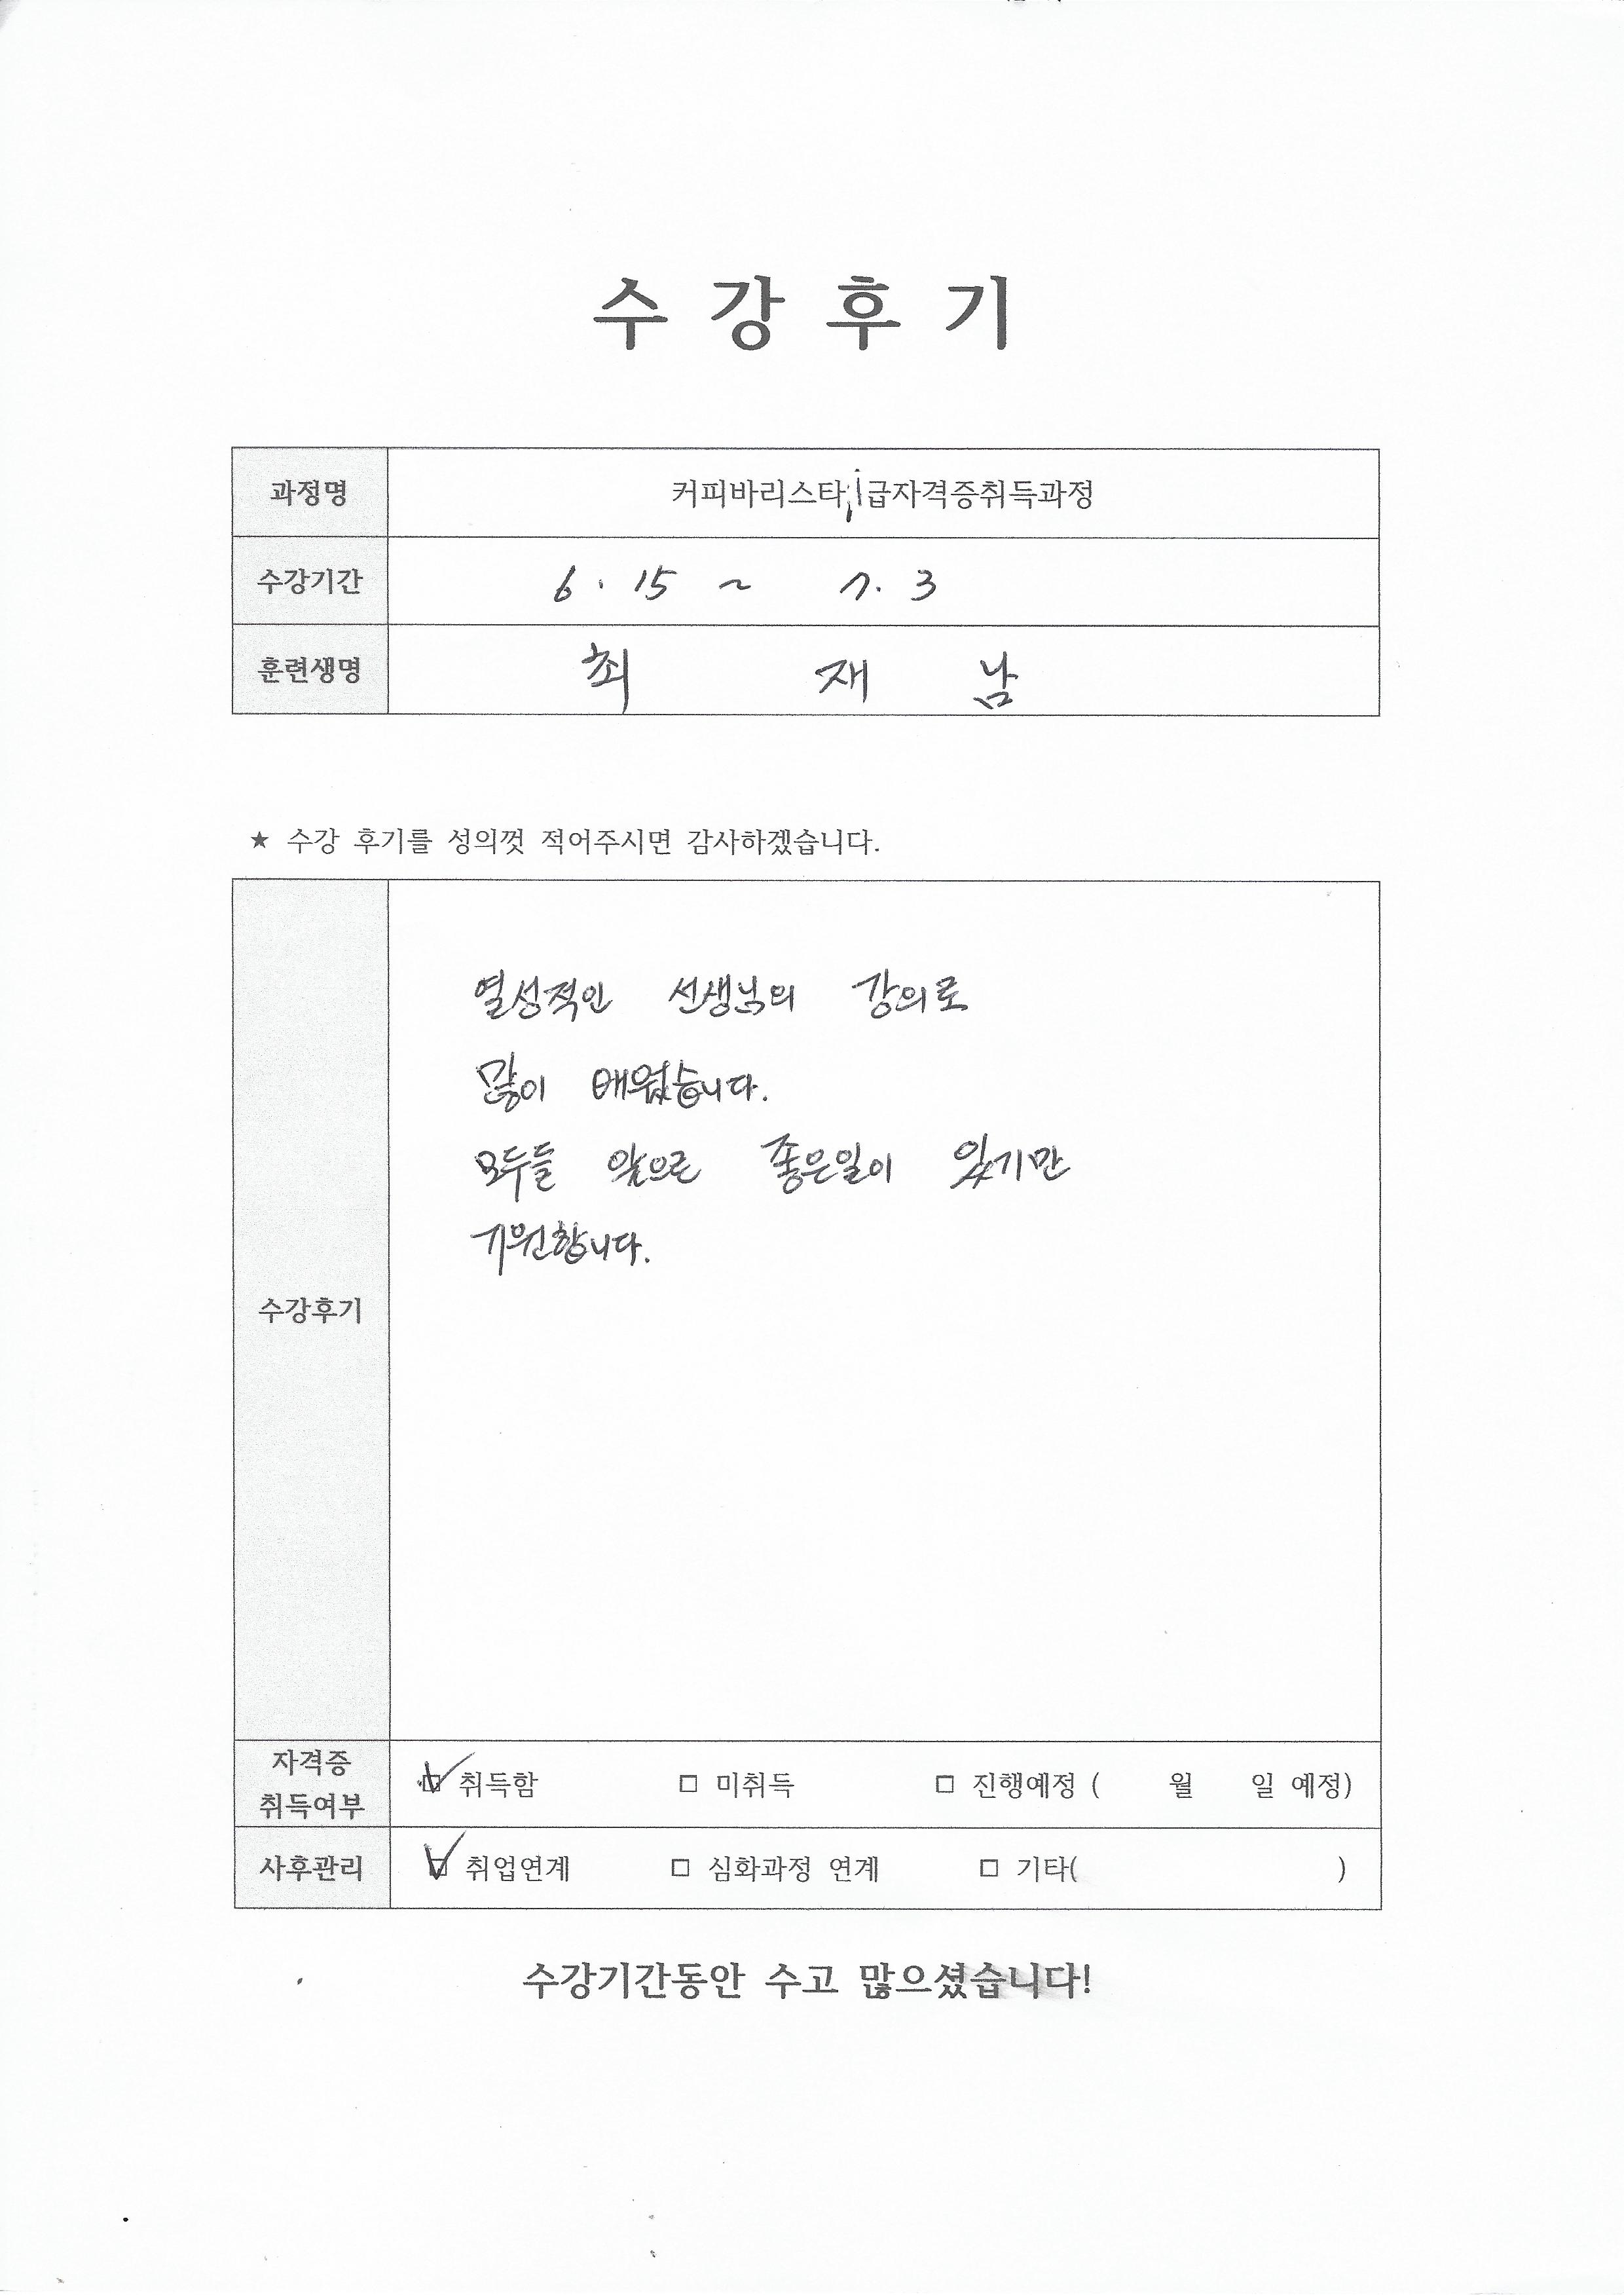 수 강 후 기
과정명 커피바리스타1급자격증취득과정
수강기간 6. 15 ~ 7. 3
훈련생명 최 재 남
★ 수강 후기를 성의껏 적어주시면 감사하겠습니다.
열성적인 선생님의 강의로
많이 배웠습니다.
모두들 앞으로 좋은일이 있기만
기원합니다.
수강후기
자격증
취득여부 ☑ 취득함 □ 미취득 □ 진행예정 ( 월 일 예정)
사후관리 ☑ 취업연계 □ 심화과정 연계 □ 기타( )
수강기간동안 수고 많으셨습니다!